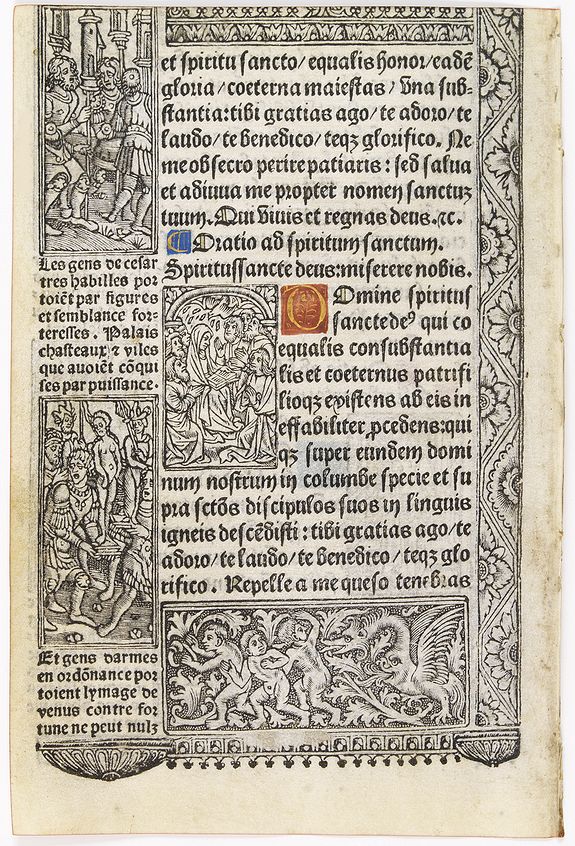 et spiritu sancto / equalis honor / eadē
gloria / coeterna maiestas / Vna sub⸗
stantia: tibi gratias ago / te adoro / te
laudo / te benedico / teqꝫ glorifico. Ne
me obsecro perire patiaris : sed salua
et adiuua me propter nomen sanctuꝫ
tuum. Qui viuis et regnas deus. ⁊c.
Oratio ad spiritum sanctum.
Spiritussancte deus: miserere nobis.
Domine spiritus
sancte deꝰ qui co
equalis consubstantia
lis et coeternus patri fi
lioqꝫ existens ab eis in
effabiliter ꝓcedens: qui
qꝫ super eundem domi
num nostrum in columbe specie et su
pra sctōs discipulos suos in linguis
igneis descēdisti : tibi gratias ago / te
adoro / te laudo / te benedico / teqꝫ glo
rifico. Repelle a me queso tenebras
Les gens de cesar
tres habilles por
toiēt par figures
et semblance for⸗
teresses. Palais
chasteaux ⁊ viles
que auoiēt cōqui
ses par puissance.
Et gens darmes
en ordōnance por
toient lymage de
venus contre for
tune ne peut nulꝫ